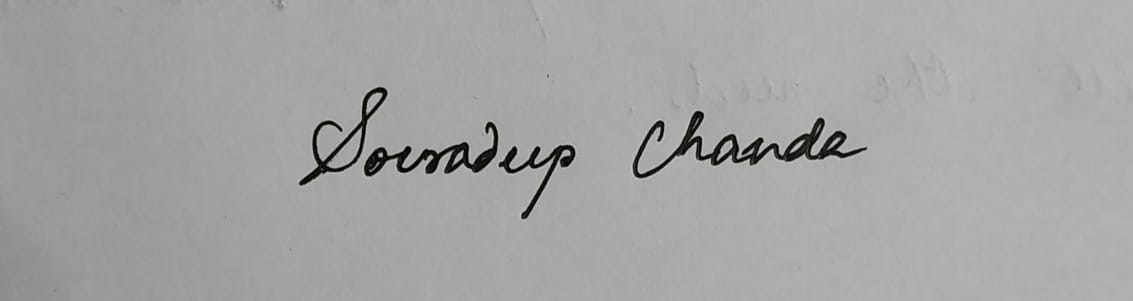 Souradeep Chanda